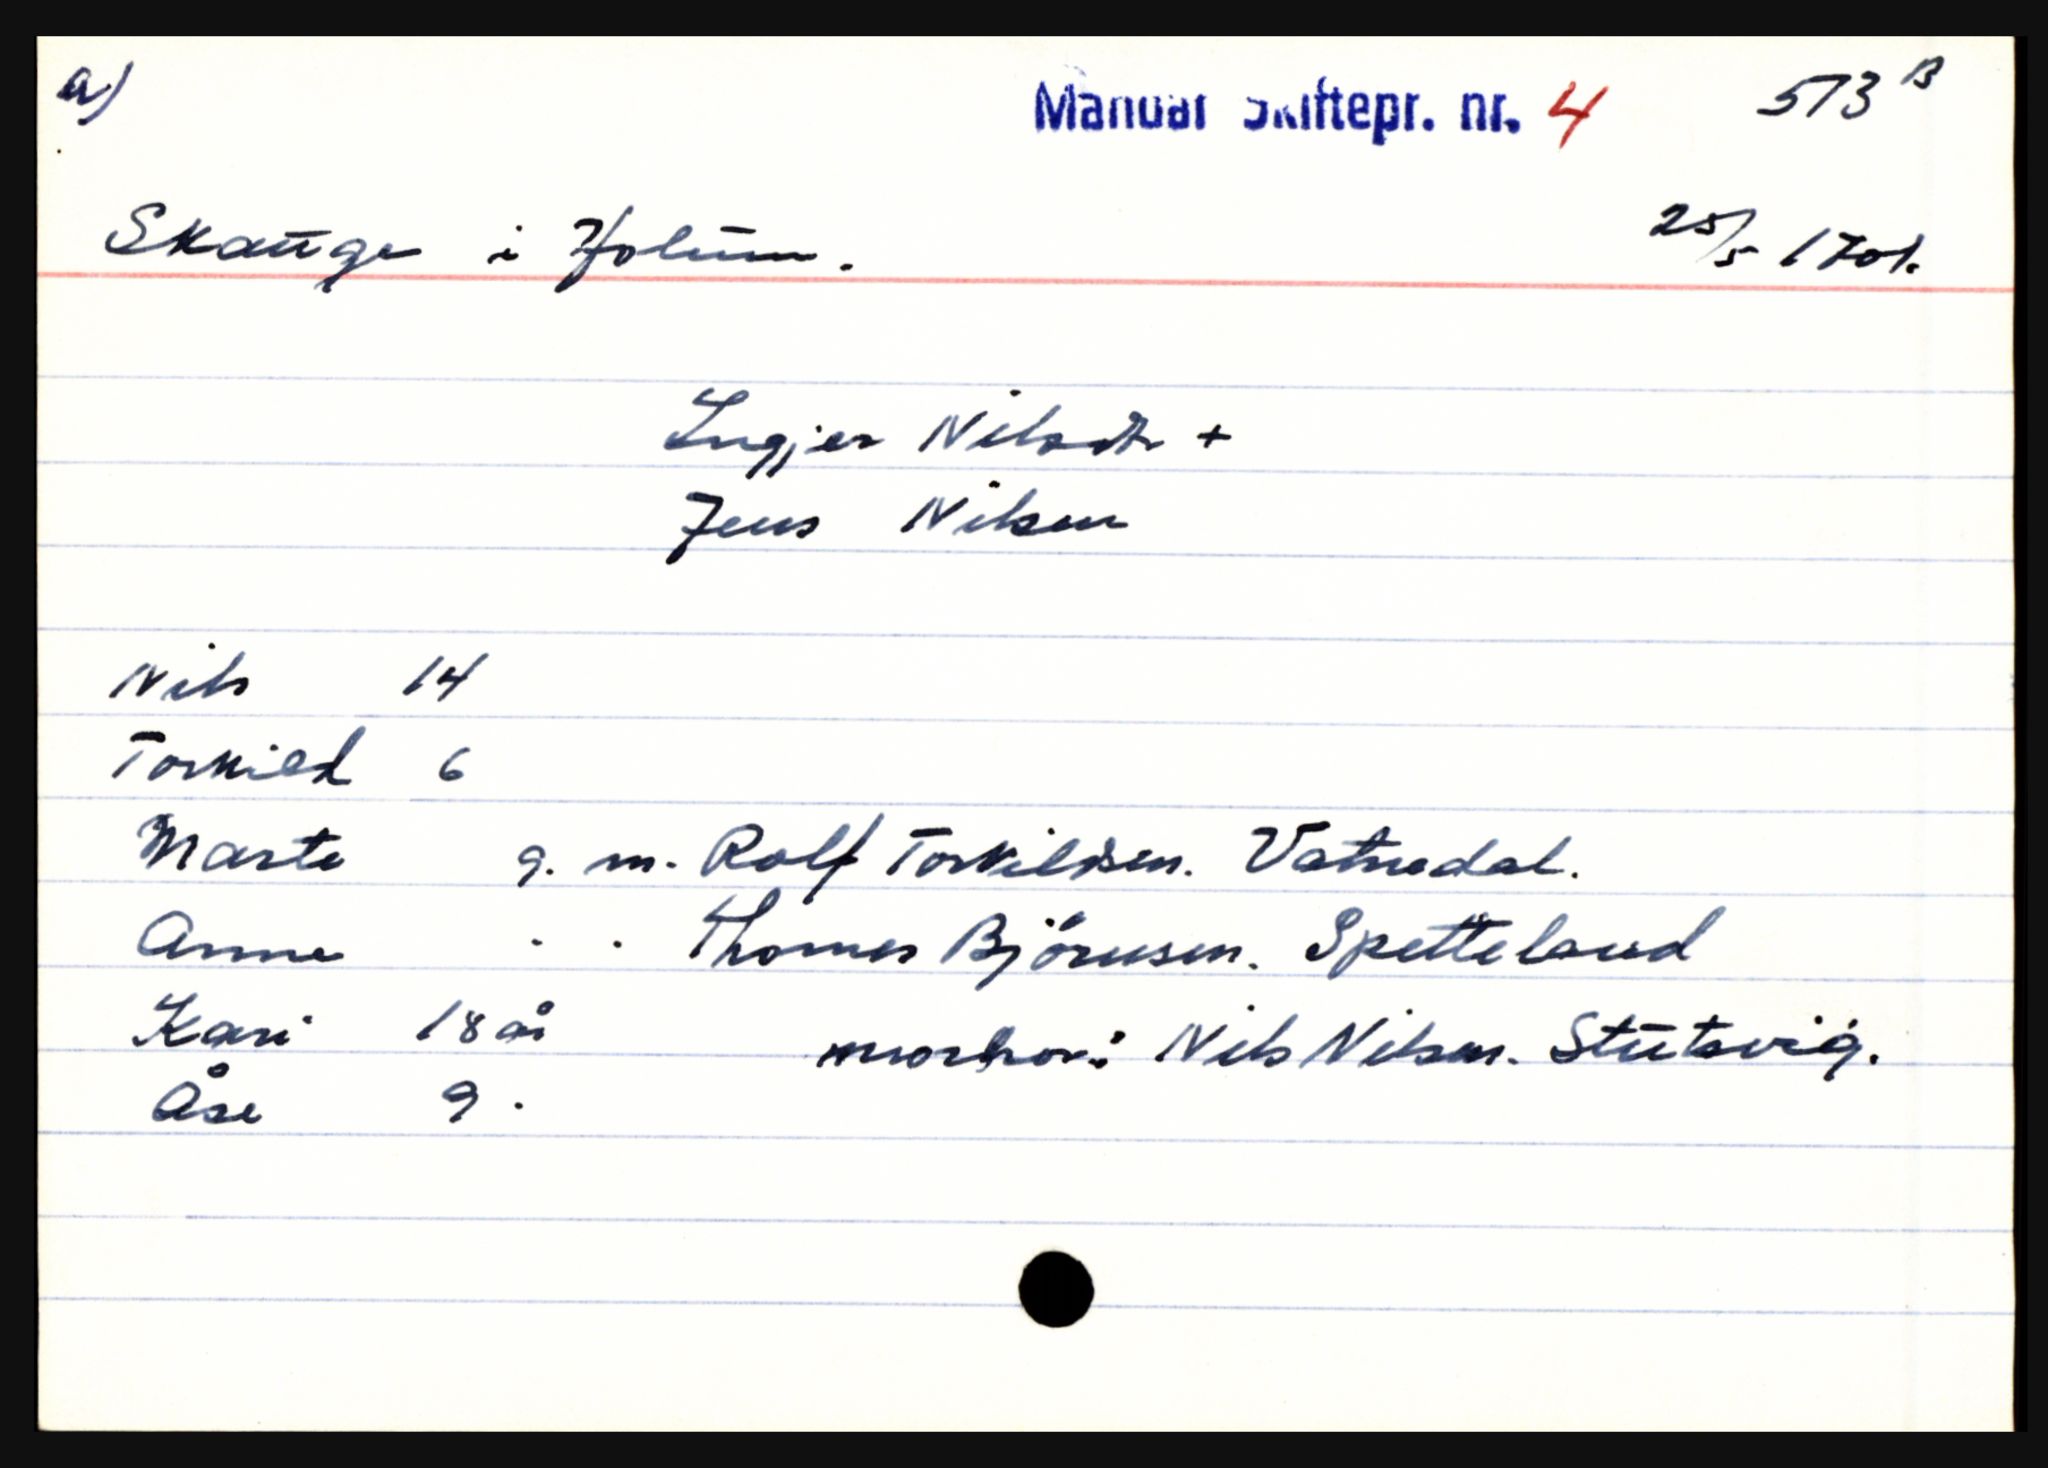 a) Manual Skiftepr. nr. 4 573 B
Skauge i Holum. 25/5 1701.
Ingjer Nilsdtr +
Jens Nilsen
Nils 14
Torkild 6
Marte g. m. Rolf Torkildsen. Vatnedal.
Anne . . Thomes Björnsen. Spetteland
Kari 18 år morbror: Nils Nilsen. Stutevig.
Åse 9 .